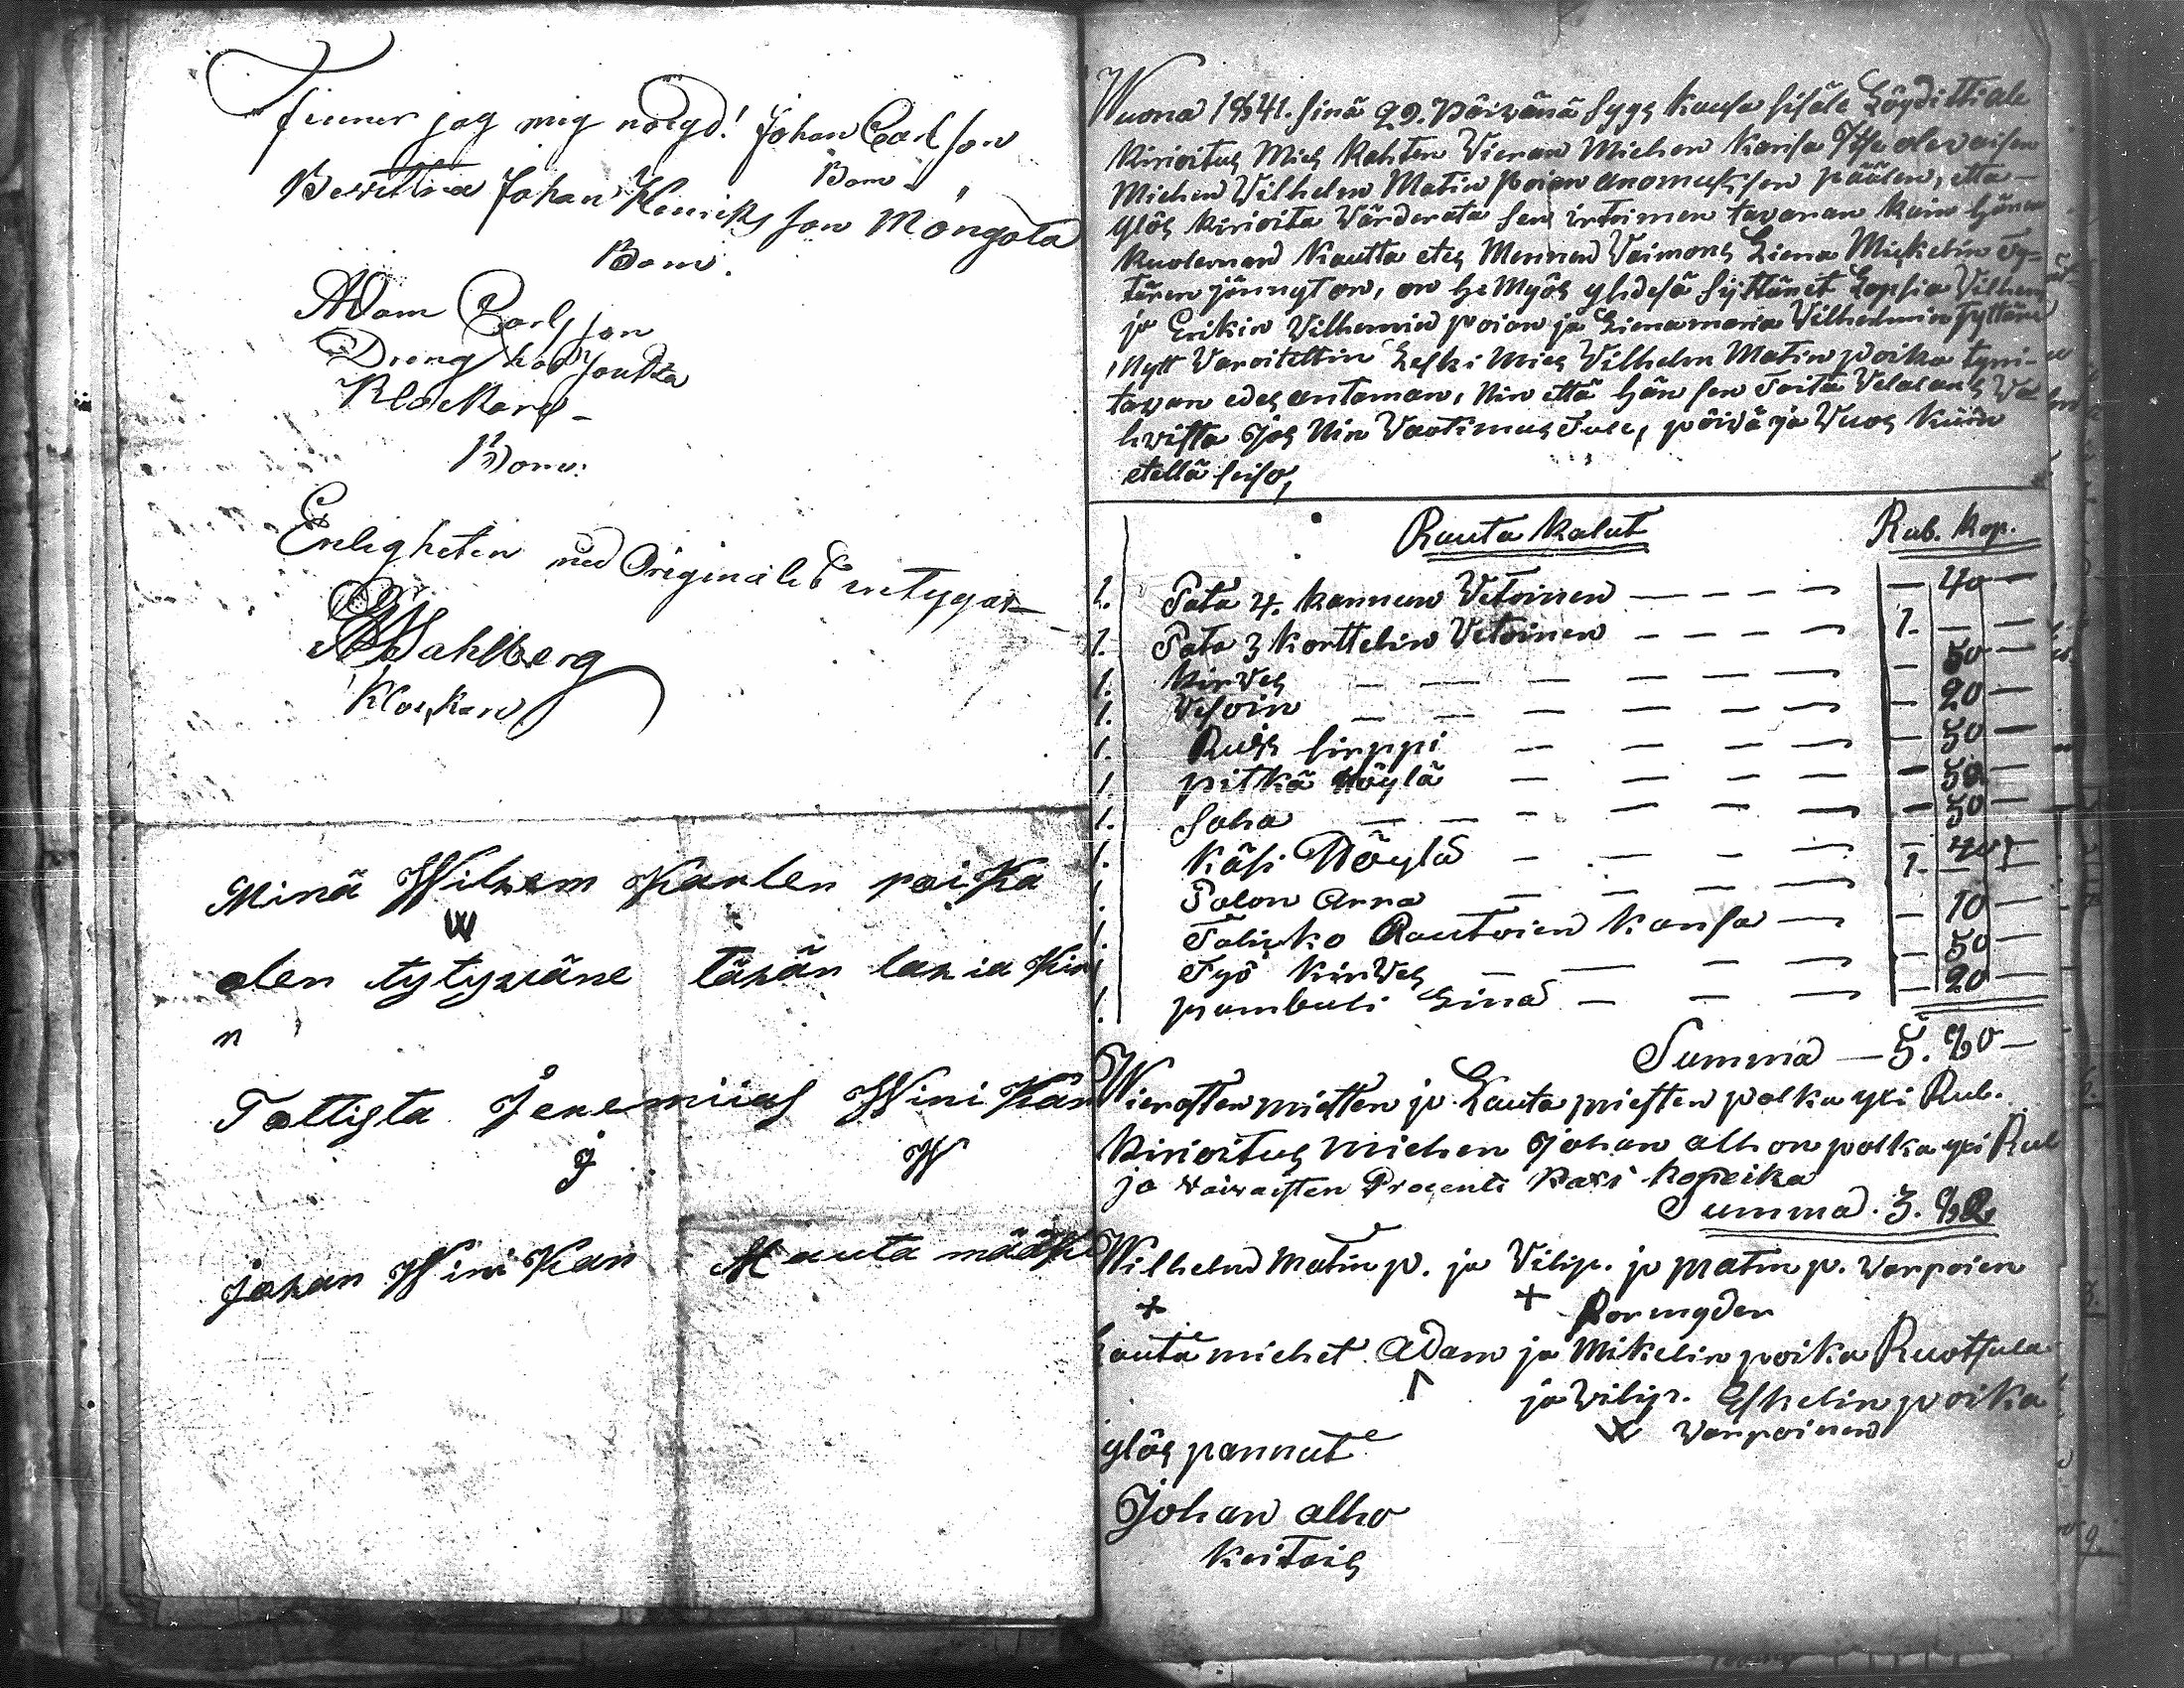 finner jag mig nöigd! Johan Carlson
Bom.
Bevittna Johan Henriksson Mongola
Bom.
Adam Carlsson
Dreng hos
Klockare
Bom.
Enligheten med Originalet intygar
Wahlberg
Klockare
Minä Wilhem Karlen poika
W
olen tytywäne tähän lahia Kir
n
Tottista Jeremiias Wini Kan
J W
Johan Wini Kan Mauta määki
Wuona 1841. sinä 29. päiwänä Syys Kausa sisäle Löydittiale
Kirioitus Mies Kahten Vieran Miehen Kansa Itse olevaisen
Miehen Wilhelm Matin Poian anomuksen päälen, etta
ylös Kirioita Värderata sen irtoimen tavaran Kuin hänen
Kuoleman Kautta etes Mennen Vaimons Liena Mickelin Ty-
tären jäänyt on, on he Myös yhdesä syttänet Lapsia Vilhem
ja Erikin Vilhemin poian ja Lienamaria Vilhelmin Tyttären
, Nytt Varoitettin Leski Mies Vilhelm Matin poika tyni-
tavan edes antaman, Nin että hän sen Taita Velalans Va
hvista Jos Nin Vaatimus Tule, päivä ja Vuos Kuin
etellä seiso,
Rauta Kalut Rub. Kop.
1. Pata 4. Kannun Vetoinen — 40 —
1. Pata 3 Korttelin Vetoinen 1. — —
1. Kirves — 50 —
1. Vesoin — 20 —
1. Ruis Sirppi — 50 —
1. pitkä Höylä — 50 —
1. Saha — 50 —
1. Käsi Höylä — 40
1. Palon Arra 1. — —
1. Talikko Rautoien Kansa — 10 —
1. Työ Kirves — 50 —
1. pumbuli Liina — 20 —
Summa — 5. 80 —
Wierasten miesten ja Lauta miesten palka yxi Rub.
Kirioitus miehen Johan alhon palka yxi Rub
ja vaivaisten Procenti Kaxi Kopeika
Summa. 3. 82
Wilhelm Matin p. ja Vilip. ja Matin p. Varpoien
+ + Pormyder
Lauta miehet Adam ja Mikelin poika Ruotsala
ja Vilip. Eskelin poika
Varpoinen
ylös pannut
Johan alho
Keitois